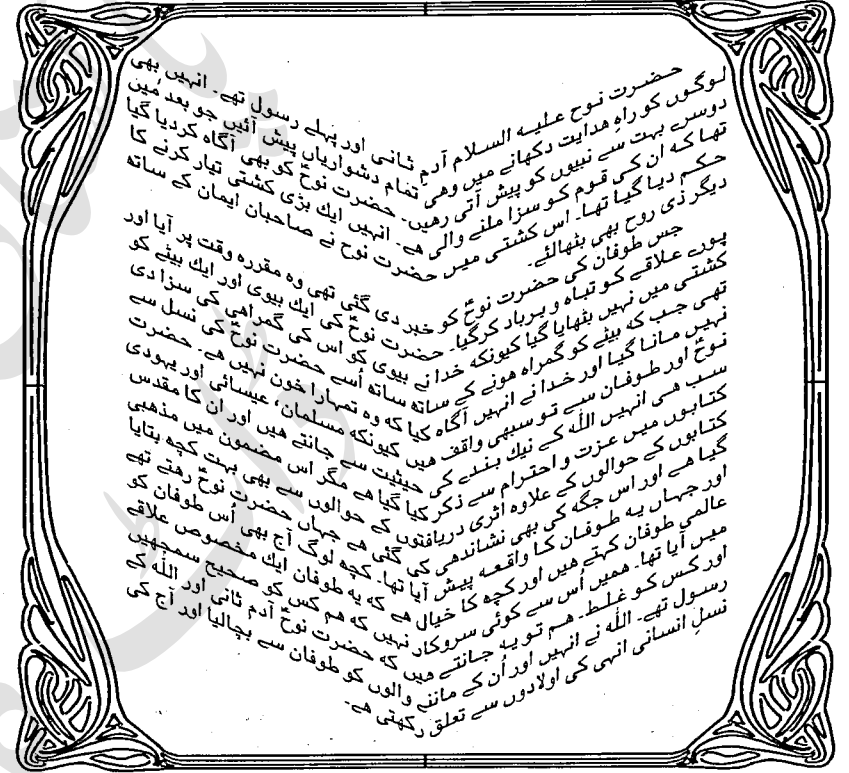 حضرت نوح علیہ السلام آدمِ ثانی اور پہلے رسول تھے۔ انہیں بھی
لوگوں کو راہِ ھدایت دکھانے میں وھی تمام دشواریاں پیش آئیں جو بعد میں
دوسرے بہت سے نبیوں کو پیش آتی رھیں۔ حضرت نوحؑ کو بھی آگاہ کردیا گیا
تھا کہ ان کی قوم کو سزا ملنے والی ھے۔ انہیں ایك بڑی کشتی تیار کرنے کا
حکم دیا گیا تھا۔ اس کشتی میں حضرت نوح نے صاحبان ایمان کے ساتھ
دیگر ذی روح بھی بٹھالئے۔
جس طوفان کی حضرت نوحؑ کو خبر دی گئی تھی وہ مقررہ وقت پر آیا اور
پورے علاقے کو تباہ و برباد کرگیا۔ حضرت نوحؑ کی ایك بیوی اور ایك بیٹے کو
کشتی میں نہیں بٹھایا گیا کیونکہ خدا نے بیوی کو اس کی گمراھی کی سزا دی
تھی جب کہ بیٹے کو گمراہ ھونے کے ساتھ ساتھ اُسے حضرت نوحؑ کی نسل سے
نہیں مانا گیا اور خدا نے انہیں آگاہ کیا کہ وہ تمہارا خون نہیں ھے۔ حضرت
نوحؑ اور طوفان سے تو سبھی واقف ھیں کیونکہ مسلمان، عیسائی اور یہودی
سب ھی انہیں اللّٰہ کے نیك بندے کی حیثیت سے جانتے ھیں اور ان کا مقدس
کتابوں میں عزت و احترام سے ذکر کیا گیا ھے مگر اس مضمون میں مذھبی
کتابوں کے حوالوں کے علاوہ اثری دریافتوں کے حوالوں سے بھی بہت کچھ بتایا
گیا ھے اور اس جگہ کی بھی نشاندھی کی گئی ھے جہاں حضرت نوحؑ رھتے تھے
اور جہاں یہ طوفان کا واقعہ پیش آیا تھا۔ کچھ لوگ آج بھی اُس طوفان کو
عالمی طوفان کہتے ھیں اور کچھ کا خیال ھے کہ یہ طوفان ایك مخصوص علاقے
میں آیا تھا۔ ھمیں اُس سے کوئی سروکار نہیں کہ ھم کس کو صحیح سمجھیں
اور کس کو غلط۔ ھم تو یہ جانتے ھیں کہ حضرت نوحؑ آدم ثانی اور اللّٰہ کے
رسول تھے۔ اللّٰہ نے انہیں اور اُن کے ماننے والوں کو طوفان سے بچالیا اور آج کی
نسلِ انسانی انہی کی اولادوں سے تعلق رکھتی ھے۔